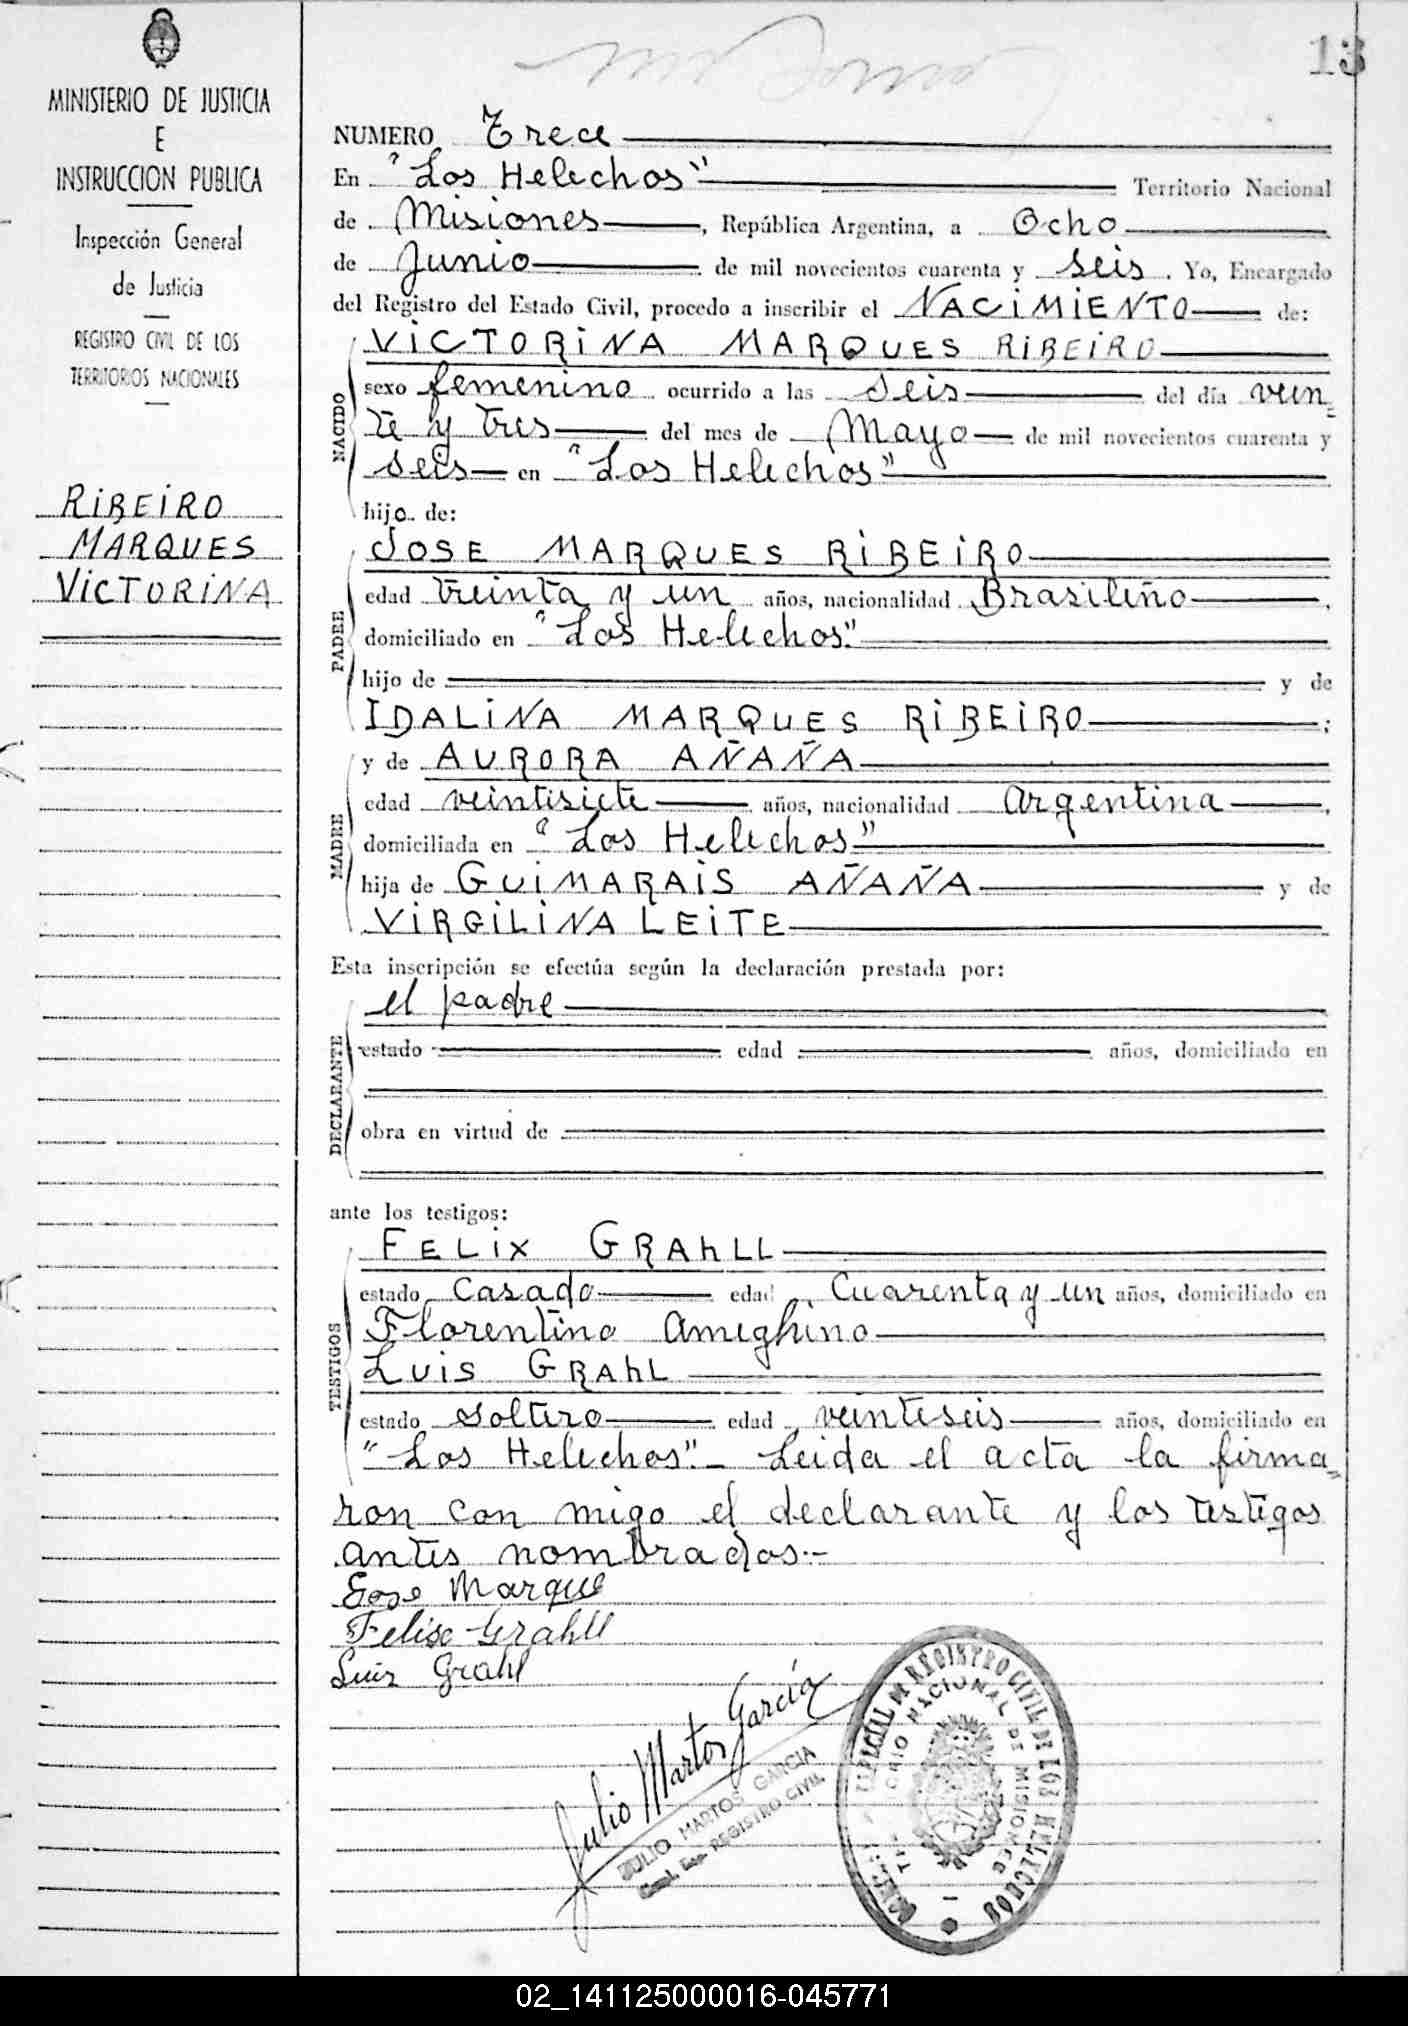 13
MINISTERIO DE JUSTICIA
E
INSTRUCCION PUBLICA
Inspección General
de Justicia
REGISTRO CIVIL DE LOS
TERRITORIOS NACIONALES
RIBEIRO
MARQUES
VICTORINA
NUMERO Trece
En "Los Helechos" Territorio Nacional
de Misiones, República Argentina, a Ocho
de Junio de mil novecientos cuarenta y seis. Yo, Encargado
del Registro del Estado Civil, procedo a inscribir el NACIMIENTO de:
NACIDO
VICTORINA MARQUES RIBEIRO
sexo femenino ocurrido a las seis del día vein=
te y tres del mes de Mayo de mil novecientos cuarenta y
seis en "Los Helechos"
hijo de:
PADRE
JOSE MARQUES RIBEIRO
edad treinta y un años, nacionalidad Brasileño,
domiciliado en "Los Helechos".
hijo de y de
IDALINA MARQUES RIBEIRO;
MADRE
y de AURORA AÑAÑA
edad veintisiete años, nacionalidad Argentina,
domiciliada en "Los Helechos"
hija de GUIMARAIS AÑAÑA y de
VIRGILINA LEITE
Esta inscripción se efectúa según la declaración prestada por:
DECLARANTE
el padre
estado edad años, domiciliado en
obra en virtud de
ante los testigos:
TESTIGOS
FELIX GRAHLL
estado Casado edad Cuarenta y un años, domiciliado en
Florentino Ameghino
LUIS GRAHL
estado soltero edad veinteseis años, domiciliado en
"Los Helechos".- Leida el acta la firma=
ron con migo el declarante y los testigos
antes nombrados.-
Jose Marque
Felise Grahll
Luis Grahl
Julio Martos García
JULIO MARTOS GARCIA
REGISTRO CIVIL
DE REGISTRO CIVIL DE LOS HELECHOS
NACIONAL DE MISIONES
02_141125000016-045771